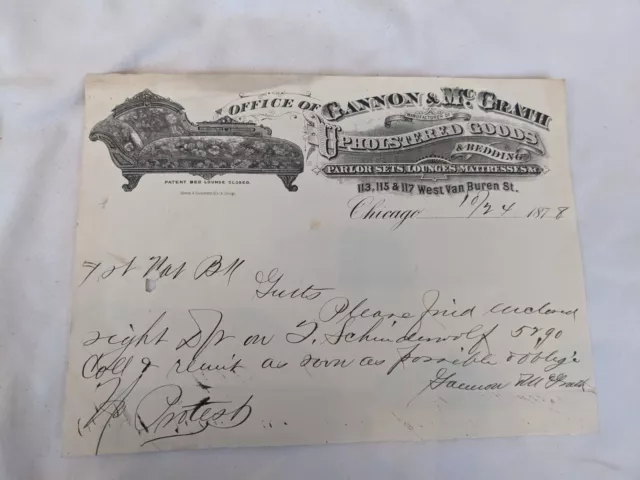 OFFICE OF GANNON & McGRATH
MANUFACTURERS OF
UPHOLSTERED GOODS
& BEDDING
PARLOR SETS, LOUNGES, MATTRESSES &c
PATENT BED LOUNGE CLOSED.
113, 115 & 117 West Van Buren St.
Chicago 10/24 1878
1st Nat Bk
Gents
Please find enclosed
sight Dft on Schinderwolf
Coll & remit as soon as possible & oblige
Gannon McGrath
No Protest